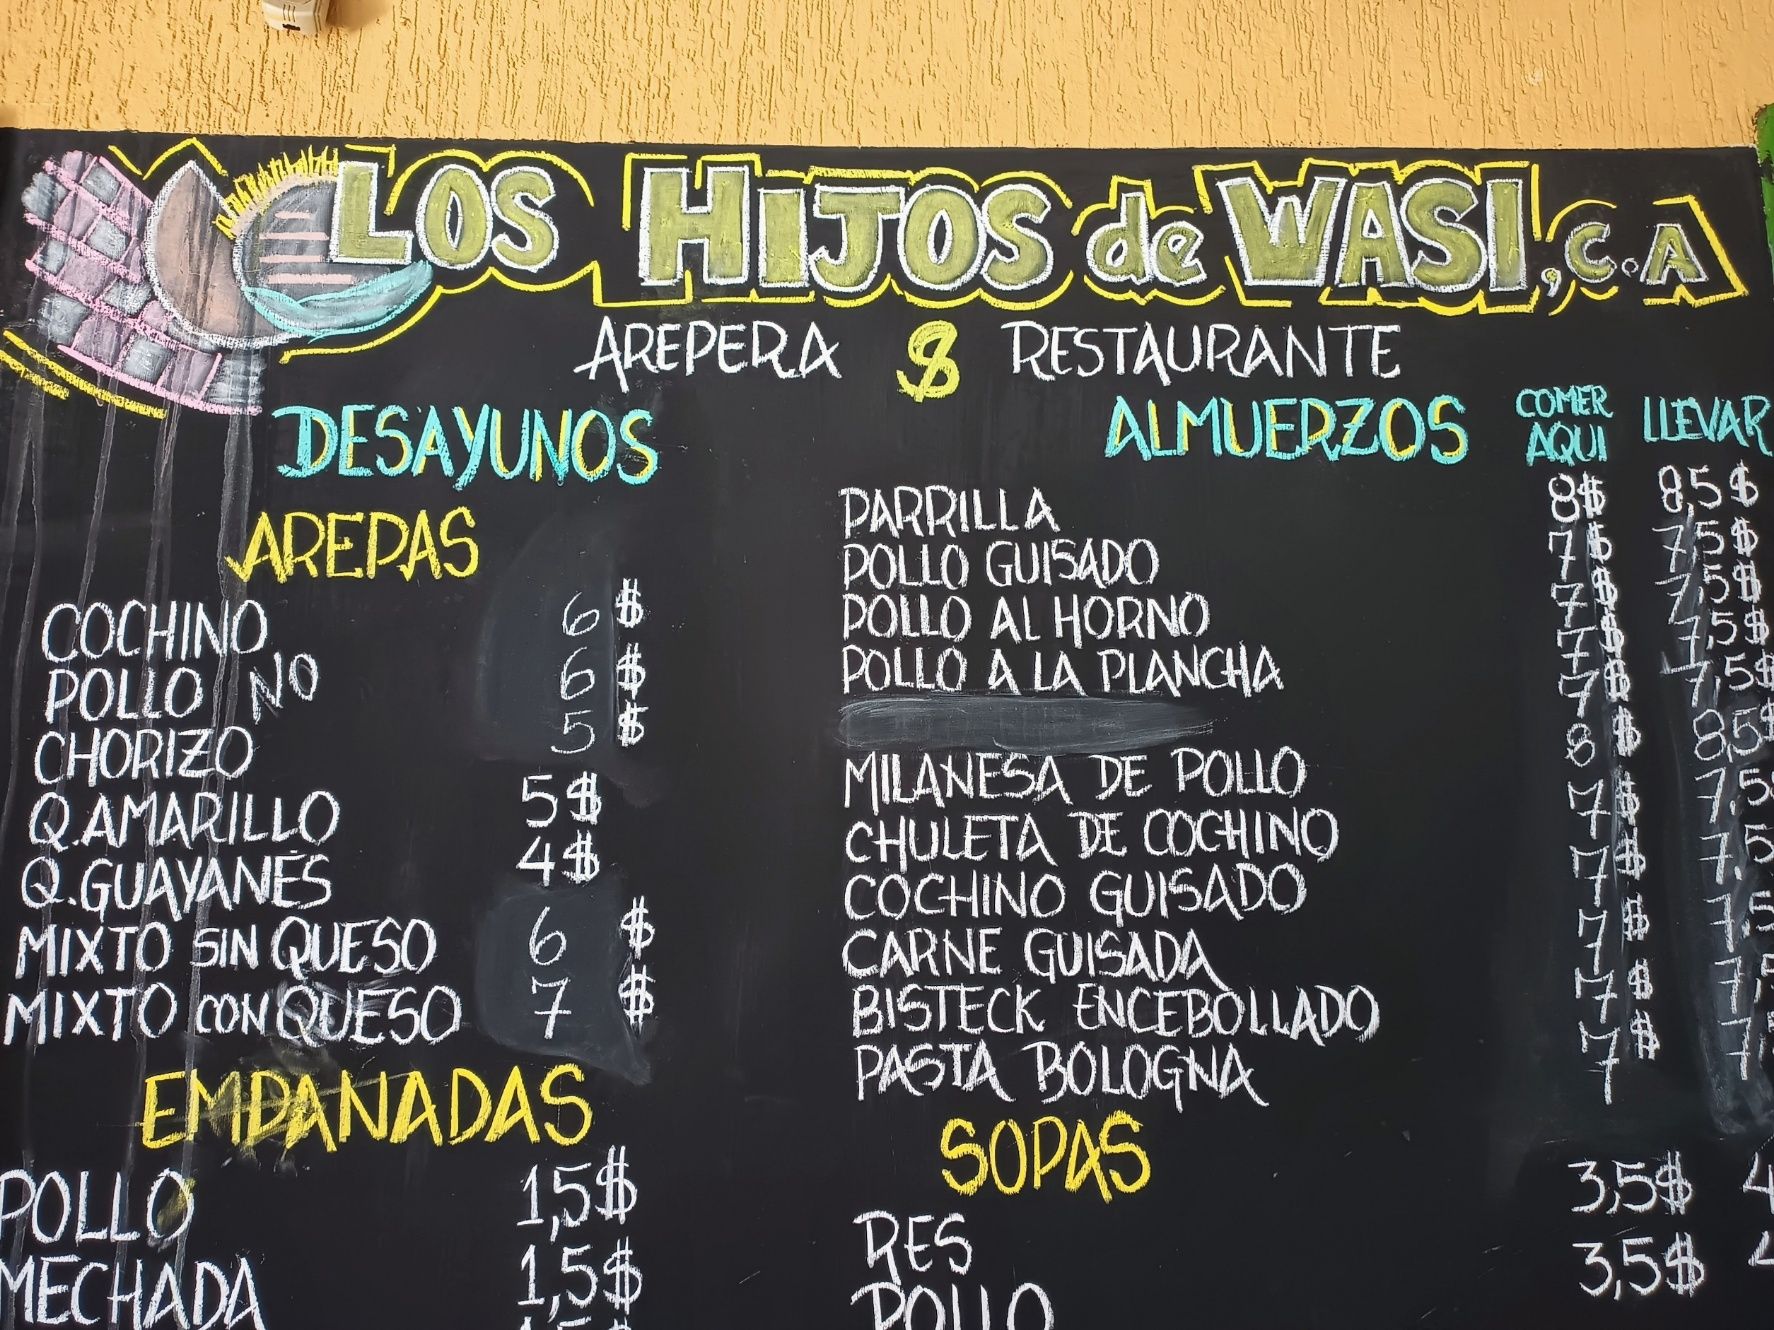 LOS HIJOS de WASI, C.A
AREPERA & RESTAURANTE
DESAYUNOS
AREPAS
COCHINO 6 $
POLLO NO 6 $
CHORIZO 5 $
Q. AMARILLO 5$
Q. GUAYANÉS 4$
MIXTO SIN QUESO 6 $
MIXTO CON QUESO 7 $
EMPANADAS
POLLO 1,5$
MECHADA 1,5$
ALMUERZOS COMER AQUI LLEVAR
PARRILLA 8$ 8,5$
POLLO GUISADO 7$ 7,5$
POLLO AL HORNO 7$ 7,5$
POLLO A LA PLANCHA 7$ 7,5$
7$ 7,5$
MILANESA DE POLLO 8 $ 8,5$
CHULETA DE COCHINO 7$ 7.5$
COCHINO GUISADO 7$ 7.5
CARNE GUISADA 7$ 7.5
BISTECK ENCEBOLLADO 7$ 7,
PASTA BOLOGNA 7$ 7,
SOPAS
RES 3,5$ 4
POLLO 3,5$ 4